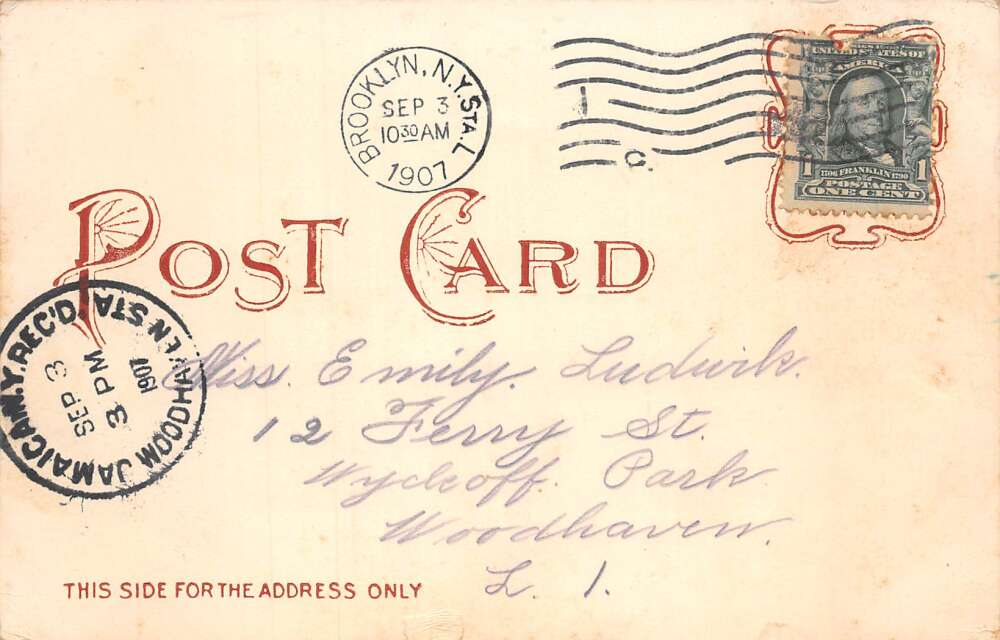 BROOKLYN, N.Y. STA. L
SEP 3
10 30 AM
1907
1 C.
UNITED STATES OF
AMERICA
1 1
1706 FRANKLIN 1790
POSTAGE
ONE CENT
POST CARD
JAMAICA N.Y. REC'D.
SEP 3
3 PM
1907
WOODHAVEN STA
Miss. Emily. Ludwik.
12 Ferry St.
Wyckoff. Park
Woodhaven.
L. I.
THIS SIDE FOR THE ADDRESS ONLY